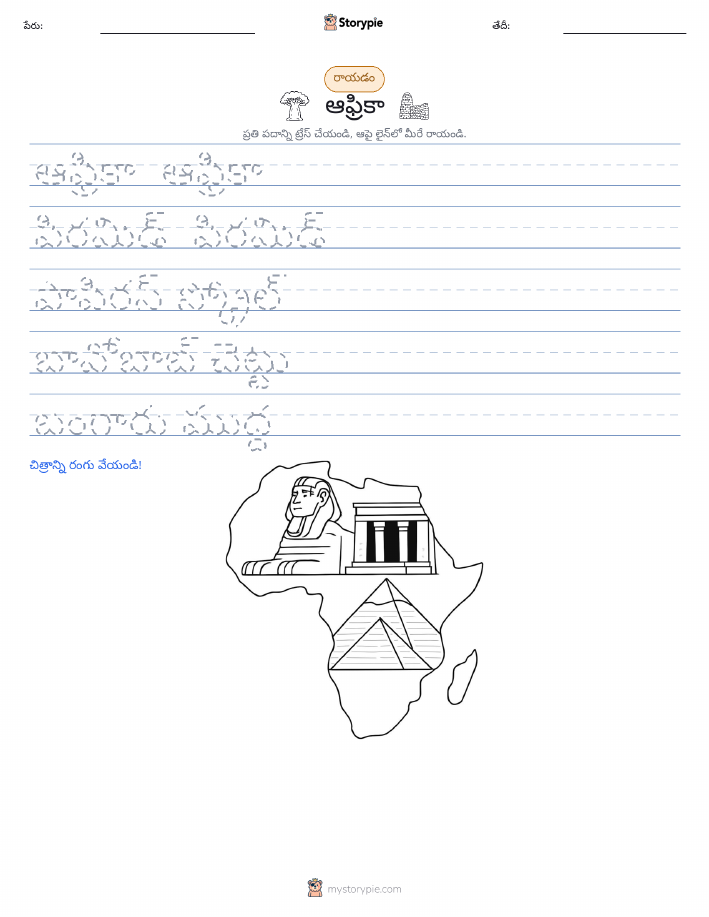 పేరు:
Storypie
తేదీ:
రాయడం
ఆఫ్రికా
ప్రతి పదాన్ని ట్రేస్ చేయండి, ఆపై లైన్‌లో మీరే రాయండి.
ఆఫ్రికా ఆఫ్రికా
పిరమిడ్ పిరమిడ్
పాపిరస్ స్క్రోల్
బావోబాబ్ చెట్టు
బంగారు ముద్ద
చిత్రాన్ని రంగు వేయండి!
mystorypie.com